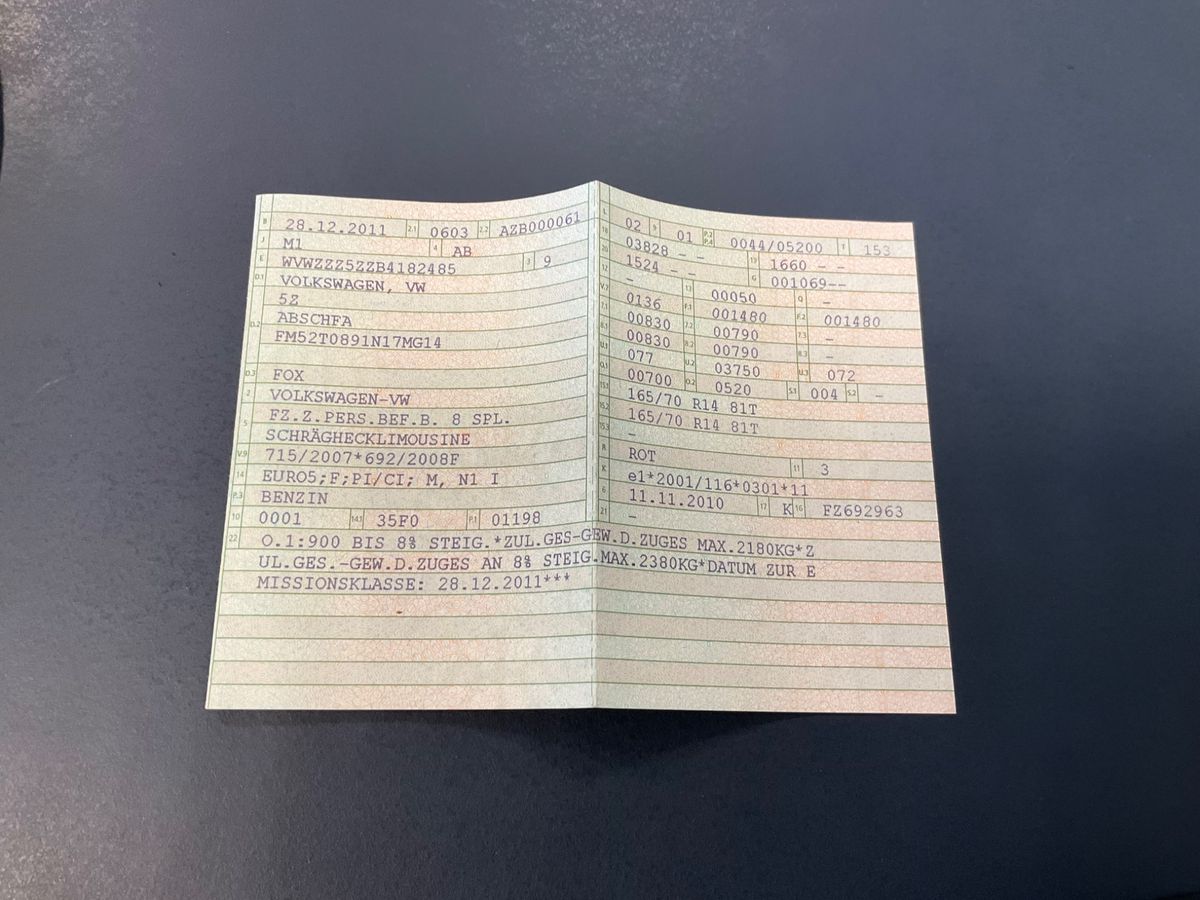 B 28.12.2011 2.1 0603 2.2 AZB000061
J M1 4 AB
E WVWZZZ5ZZB4182485 3 9
D.1 VOLKSWAGEN, VW
5Z
D.2 ABSCHFA
FM52T0891N17MG14
D.3 FOX
2 VOLKSWAGEN-VW
5 FZ.Z.PERS.BEF.B. 8 SPL.
SCHRÄGHECKLIMOUSINE
V.9 715/2007*692/2008F
14 EURO5;F;PI/CI; M, N1 I
P.3 BENZIN
10 0001 14.1 35F0 P.1 01198
L 02 9 01 P.2 P.4 0044/05200 T 153
18 03828 - - 19 1660 - -
20 1524 - - G 001069--
12 - 13 00050 Q -
V.7 0136 F.1 001480 F.2 001480
7.1 00830 7.2 00790 7.3 -
8.1 00830 8.2 00790 8.3 -
U.1 077 U.2 03750 U.3 072
O.1 00700 O.2 0520 S.1 004 S.2 -
15.1 165/70 R14 81T
15.2 165/70 R14 81T
15.3 -
R ROT 11 3
K e1*2001/116*0301*11
6 11.11.2010 17 K 16 FZ692963
21 -
22 O.1:900 BIS 8% STEIG.*ZUL.GES-GEW.D.ZUGES MAX.2180KG*Z
UL.GES.-GEW.D.ZUGES AN 8% STEIG.MAX.2380KG*DATUM ZUR E
MISSIONSKLASSE: 28.12.2011***